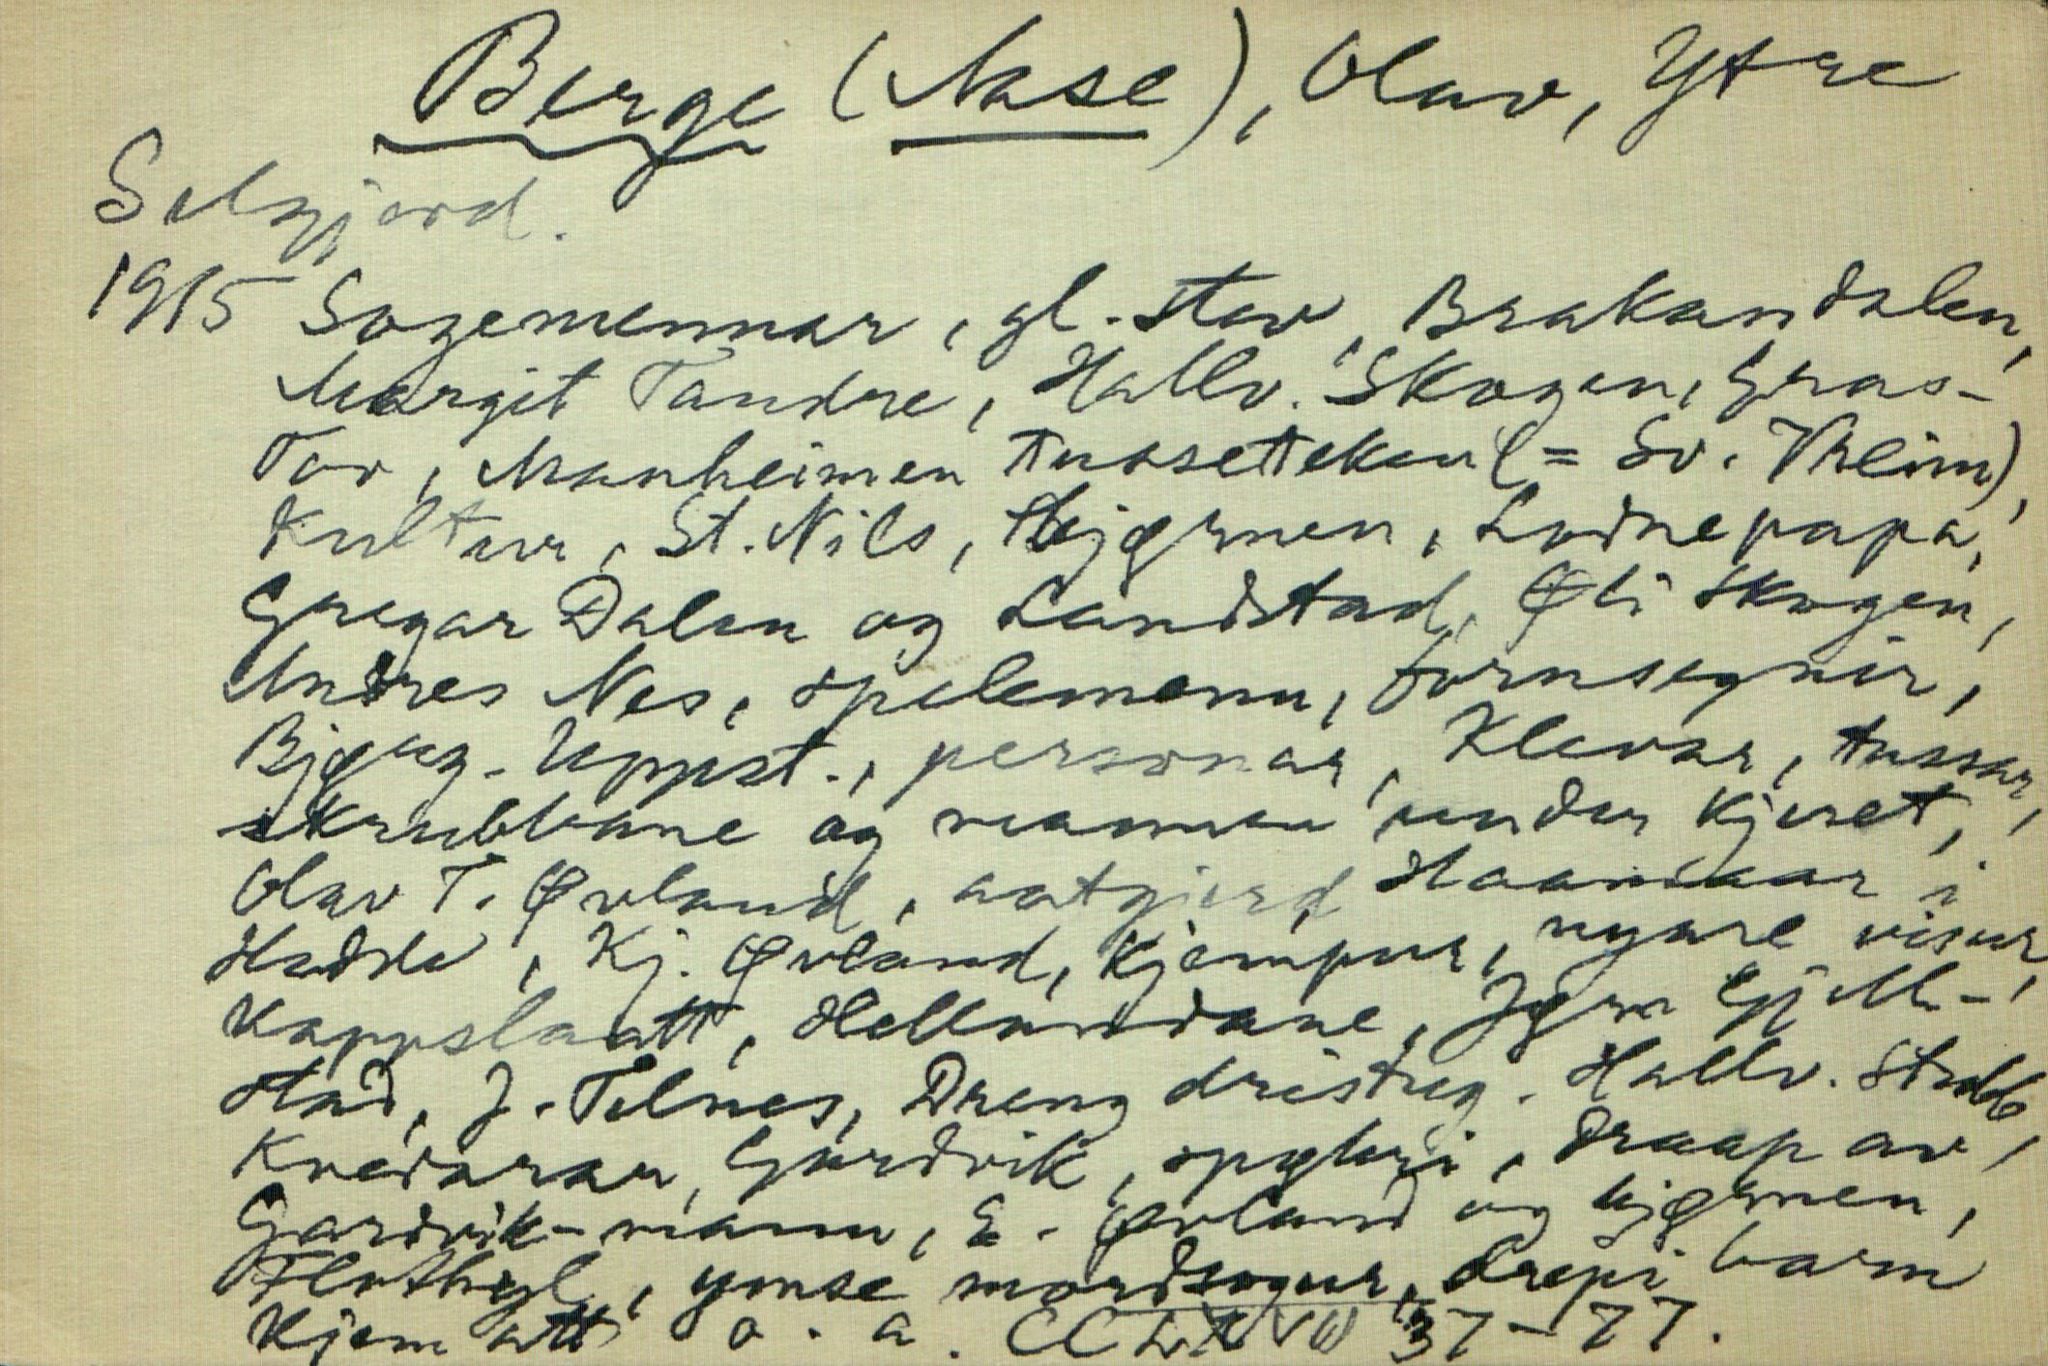 Berge (Nase), Olav, Ytre
Seljord.
1915 Sogemennar, gl. stav, Brakandalen,
Margit Tandre, Hallv. Skogen, Gras-
Tov, Manheimen tusseteken (= Sv. Vheim),
Kultur, St. Nils, Bjørnen, Lodnepapa,
Gregar Dalen og Landstad, Øli Skogen,
Andres Nes, spelemenn, fornsegnir,
Bjøug. Uppst., personar, Klevar, tussar,
skrubbane og mannen under kjeret,
Olav T. Øvland, aatgjerd, i
Hadde, Kj. Øvland, Kjempur, nyare visur,
Kappslaatt, Hellandane, Gjell-
stad, J. Telnes, Dreng dristug. Hallv. Stubb,
Kvedarar, Gardvik, spøkeri, draap av
Gardvik-mann, E. Øvland og bjørnen,
Flothyl, ymse mordsogur, drepi barn
kjem att o. a. 37-77.